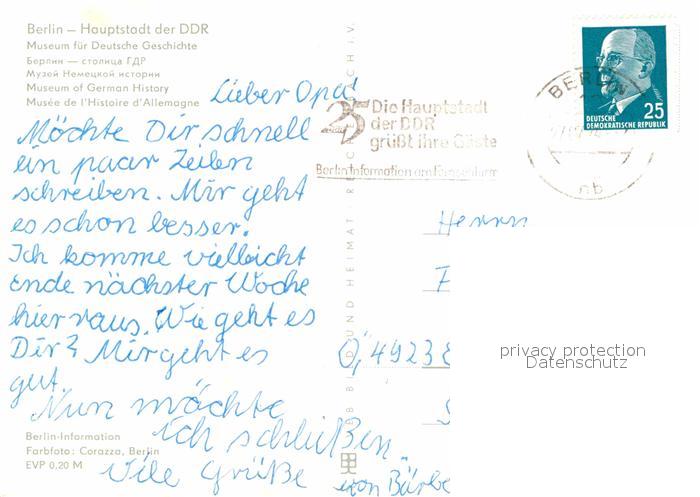 Berlin – Hauptstadt der DDR
Museum für Deutsche Geschichte
Берлин — столица ГДР
Музей Немецкой истории
Museum of German History
Musée de l'Histoire d'Allemagne
Lieber Opa!
Möchte Dir schnell
ein paar Zeilen
schreiben. Mir geht
es schon besser.
Ich komme vielleicht
ende nächster Woche
hier raus. Wie geht es
Dir? Mir geht es
gut.
Nun möchte
ich schließen.
Vile Grüße von Bärbe
Berlin-Information
Farbfoto: Corazza, Berlin
EVP 0,20 M
25 Die Hauptstadt
der DDR
grüßt ihre Gäste
Berlin-Information am Fernsehturm
BERLIN
nb
25
DEUTSCHE
DEMOKRATISCHE REPUBLIK
BILD UND HEIMAT
Herrn
F
4923
privacy protection
Datenschutz